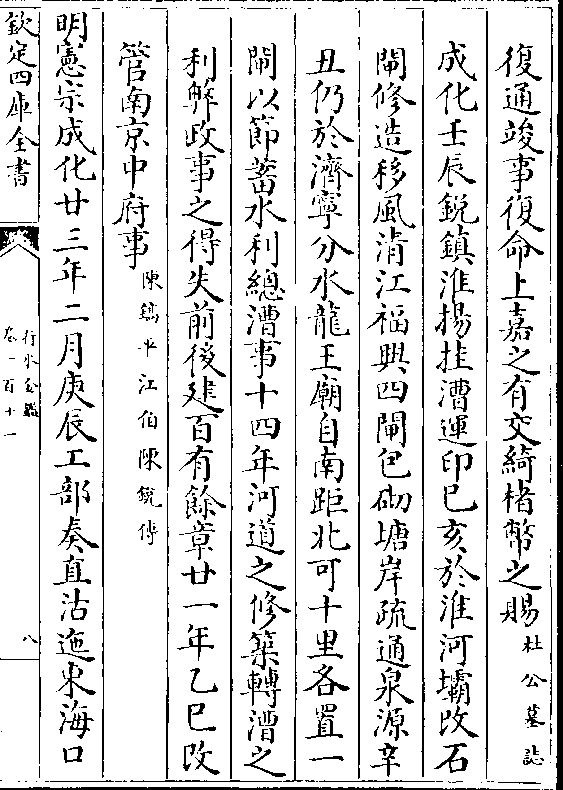 復通竣事復命上嘉之有交綺楮幣之賜杜公墓誌
成化壬辰鋭鎮淮揚挂漕運印己亥於淮河壩改石
閘修造移風清江福興四閘包砌塘岸疏通泉源辛
丑仍於濟寧分水龍王廟自南距北可十里各置一
閘以節蓄水利總漕事十四年河道之修築轉漕之
利弊政事之得失前後建百有餘章廿一年乙巳改
管南京中府事陳鎬平江伯陳鋭傳
明憲宗成化廿三年二月庚辰工部奏直沽迤東海口
欽定四庫全書
行水金鑑
卷一百十一
八